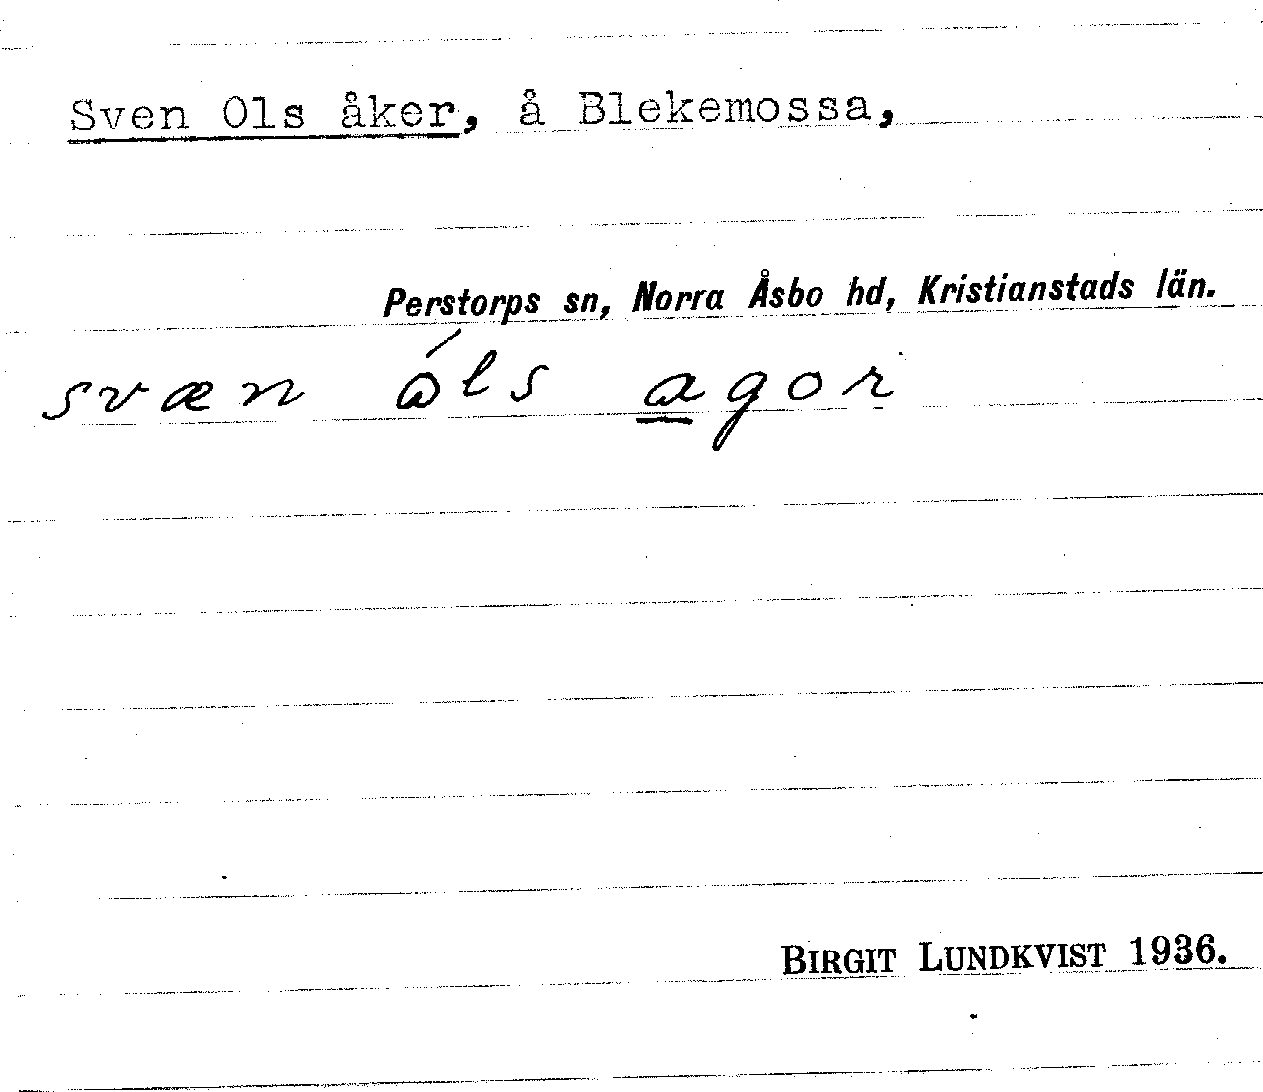 Sven Ols åker, å Blekemossa,
Perstorps sn, Norra Åsbo hd, Kristianstads län.
svæn óls agor
BIRGIT LUNDKVIST 1936.